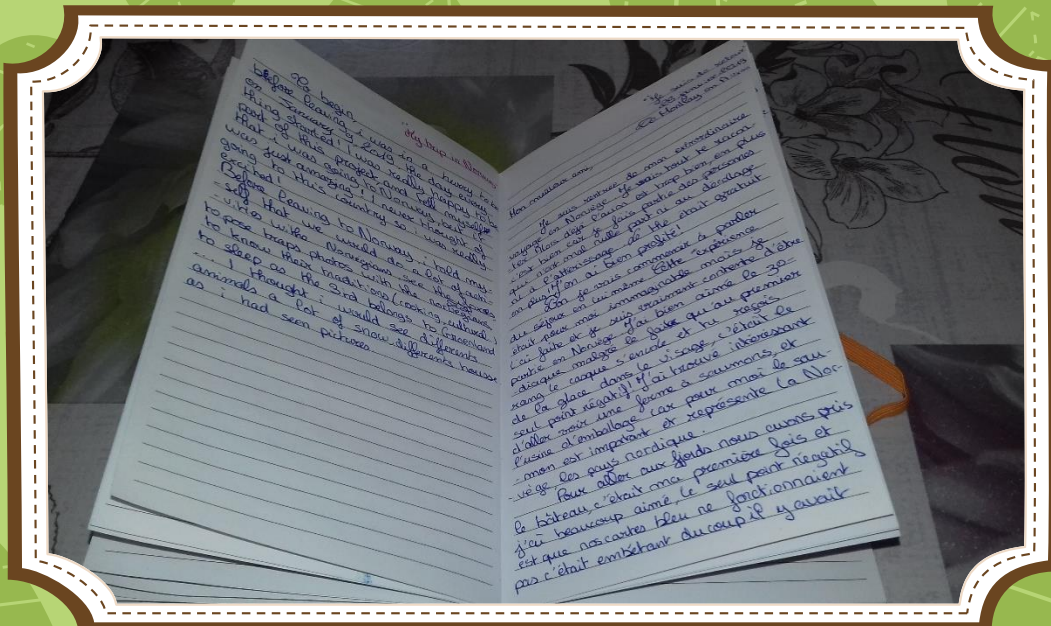 "My trip in Norway
To begin
before leaving i was in a hurry to be
on January 2019 the day every-
thing started! I was really happy to be
part of this project and tell myself
that I was going to Norway, but it
was just amazing! I never thought of
going to this country so i was really
excited!
Before leaving to Norway, i told my-
-self that we would do a lot of acti-
-vities withe Norwegians see the houses
to pose traps photos with the norvegians
to know their traditions (cooking, cultural)
to sleep as the 3rd belongs to Groenland
... I thought i would see differents
animals a lot of snow, differents house
as i had seen pictures
"Je suis de retour
de Norway en
Mon meilleur ami,
Je suis rentrée de mon extraordinaire
voyage en Norvège je vais tout te racon-
ter! Alors déjà l'avion est trop bien, en plus
c'est bien car je fais partie des personnes
qui n'ont mal nulle part ni au décollage
ni à l'atterissage de the était gratuit
en plus! J'en ai bien profité!
Bon je vais commencer à parler
du séjour en lui même. Cette expérience
était pour moi inimmaginable mais je
l'ai faite et je suis vraiment contente d'être
partie en Norvège. J'ai bien aimé le zo-
-diaque malgré le faite qu'au premier
rang le casque s'envole et tu reçois
de la glace dans le visage, c'était le
seul point négatif! J'ai trouvé intéressant
d'aller voir une ferme à saumons, et
l'usine d'emballage car pour moi le sau-
-mon est important et représente la Nor-
-vège, les pays nordique.
Pour aller aux fjords nous avons pris
le bâteau, c'était ma première fois et
j'ai beaucoup aimé, le seul point négatif
est que nos cartes bleu ne fonctionnaient
pas c'était embêtant du coup il y avait